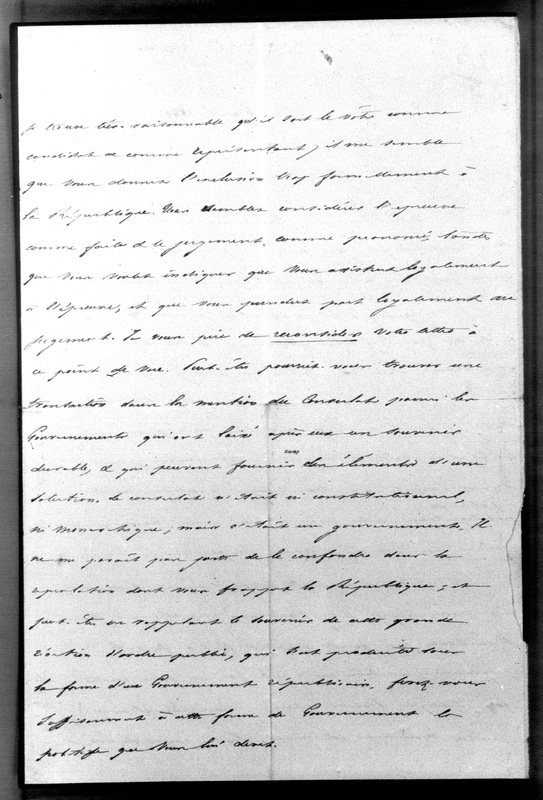 je trouve très raisonnable qu'il soit le vôtre comme
candidat et comme représentant; il me semble
que vous donnez l'exclusion trop formellement à
la République. Vous semblez considérer l'épreuve
comme faite et le jugement comme prononcé, tandis
que vous voulez indiquer que vous assistez loyalement
à l'épreuve, et que vous prendrez part loyalement au
jugement. Je vous prie de reconsidérer votre lettre à
ce point de vue. Peut-être pourriez-vous trouver une
transaction dans la mention du Consulat parmi les
Gouvernements qui ont laissé après eux un souvenir
durable, et qui peuvent fournir un des éléments d'une
solution. Le consulat n'était ni constitutionnel,
ni monarchique; mais c'était un gouvernement. Il
ne me paraît pas juste de le confondre dans la
dont vous frappez la République; et
peut-être en rappelant le souvenir de cette grande
création d'ordre public, qui s'est produite sous
la forme d'un Gouvernement républicain, ferez-vous
suffisamment à cette forme de Gouvernement la
que vous lui devez.